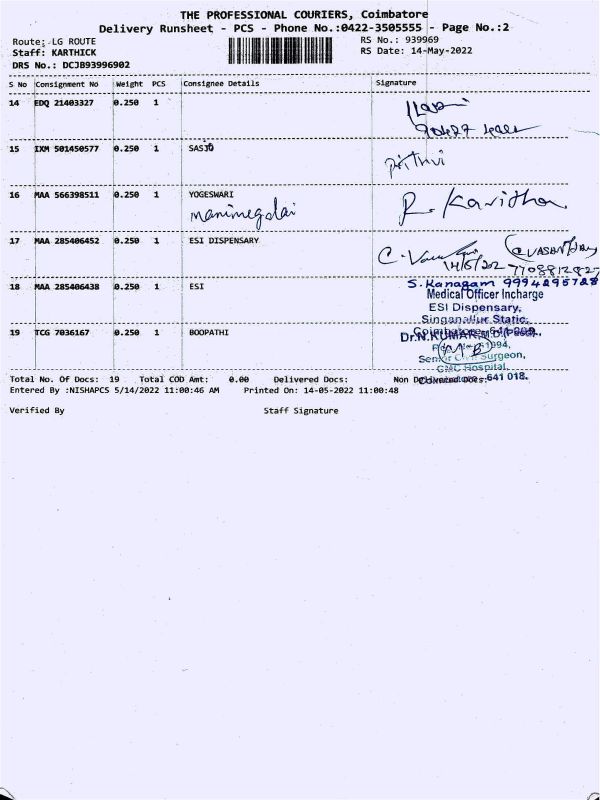 THE PROFESSIONAL COURIERS, Coimbatore
Delivery Runsheet - PCS - Phone No.:0422-3505555 - Page No.:2
Route: LG ROUTE
RS No.: 939969
Staff: KARTHICK
RS Date: 14-May-2022
DRS No.: DCJB93996902
S No Consignment No Weight PCS Consignee Details Signature
14 EDQ 21403327 0.250 1
15 IXM 501450577 0.250 1 SASJO
Prithvi
16 MAA 566398511 0.250 1 YOGESWARI
manimegalai
R. Kavitha
17 MAA 285406452 0.250 1 ESI DISPENSARY
14/5/202
S. Kanagam 9994295728
18 MAA 285406438 0.250 1 ESI
Medical Officer Incharge
ESI Dispensary,
Singanallur Static,
19 TCG 7036167 0.250 1 BOOPATHI
Dr.N.KUMAR.M.D.
Senior Civil Surgeon,
CMC Hospital,
641 018.
Total No. Of Docs: 19 Total COD Amt: 0.00 Delivered Docs: Non Delivered Docs:
Entered By :NISHAPCS 5/14/2022 11:00:46 AM Printed On: 14-05-2022 11:00:48
Verified By Staff Signature